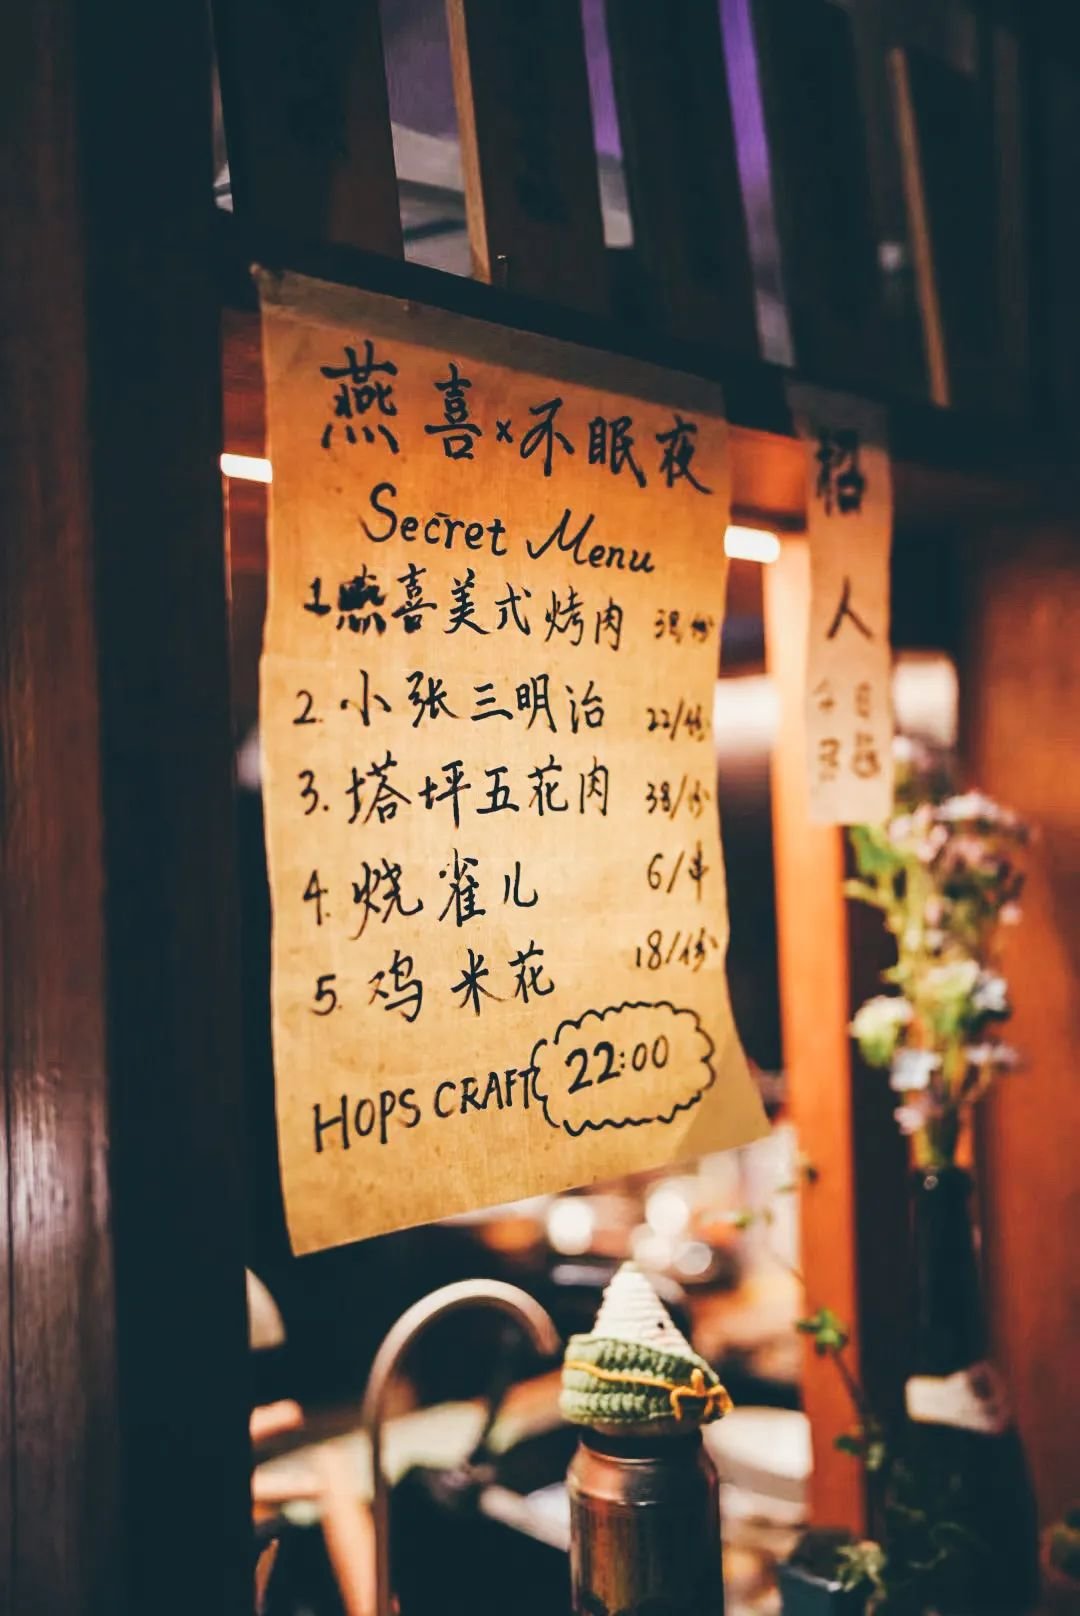 燕喜×不眠夜
Secret Menu
1 燕喜美式烤肉 38/份
2. 小张三明治 22/份
3. 塔坪五花肉 38/份
4. 烧雀儿 6/串
5. 鸡米花 18/份
HOPS CRAFT 22:00
招人